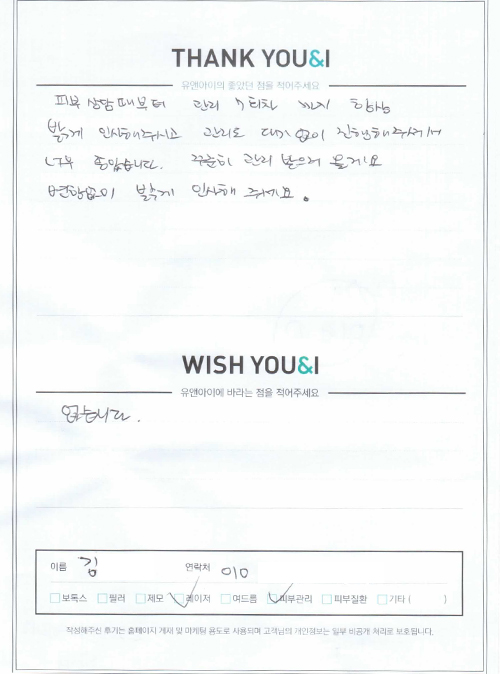 THANK YOU&I
유앤아이의 좋았던 점을 적어주세요
피부 상담때부터 관리 까지 항상
밝게 인사해주시고 관리도 대기 없이 진행해주셔서
너무 좋았습니다. 꾸준히 관리 받으러 올게요
변함없이 밝게 인사해 주세요.
WISH YOU&I
유앤아이에 바라는 점을 적어주세요
없습니다.
이름 김 연락처 010
보톡스 필러 제모 레이저 여드름 피부관리 피부질환 기타 ( )
작성해주신 후기는 홈페이지 게재 및 마케팅 용도로 사용되며 고객님의 개인정보는 일부 비공개 처리로 보호됩니다.